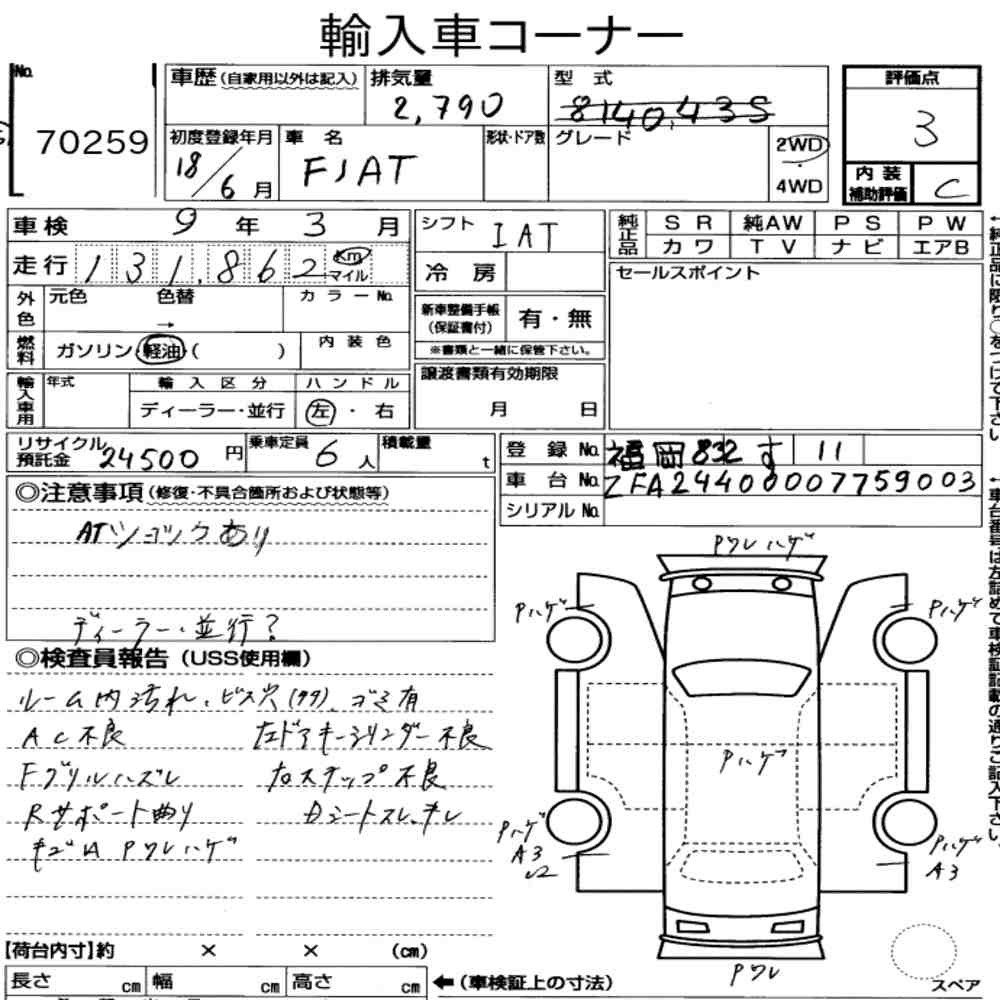 輸入車コーナー
No.
70259
車歴 (自家用以外は記入)
排気量
2,790
型 式
8140,43S
初度登録年月
18/6月
車 名
FIAT
形状・ドア数
グレード
2WD
4WD
評価点
3
内装
補助評価
C
車検 9 年 3 月
走行 131,862 Km マイル
外色 元色 色替 → カラーNo.
燃料 ガソリン・軽油・( ) 内装色
輸入車用 年式 輸入区分 ハンドル
ディーラー・並行 左・右
シフト IAT
冷房
新車整備手帳
(保証書付)
有・無
※書類と一緒に保管下さい。
譲渡書類有効期限
月 日
純正品 SR 純AW PS PW
カワ TV ナビ エアB
セールスポイント
←純正品に限り○をつけて下さい。
リサイクル預託金 24500 円 乗車定員 6 人 積載量 t
登録No. 福岡 832 す 11
車台No. ZFA24400007759003
シリアルNo.
←車台番号は左詰めで車検証記載の通りご記入下さい。
◎注意事項 (修復・不具合箇所および状態等)
ATショックあり
ディーラー・並行?
◎検査員報告 (USS使用欄)
ルーム内汚れ、ビス穴(タタ)、ゴミ有
AC不良 左ドアキーシリンダー不良
Fグリルハズレ 左ステップ不良
Rサポート曲り Dシートスレ、キレ
キズA PワレハゲPワレハゲ
Pハゲ
Pハゲ
Pハゲ
Pハゲ
A3
Pハゲ
A3
Pワレ
スペア
【荷台内寸】約 × × (cm)
長さ cm 幅 cm 高さ cm ←(車検証上の寸法)